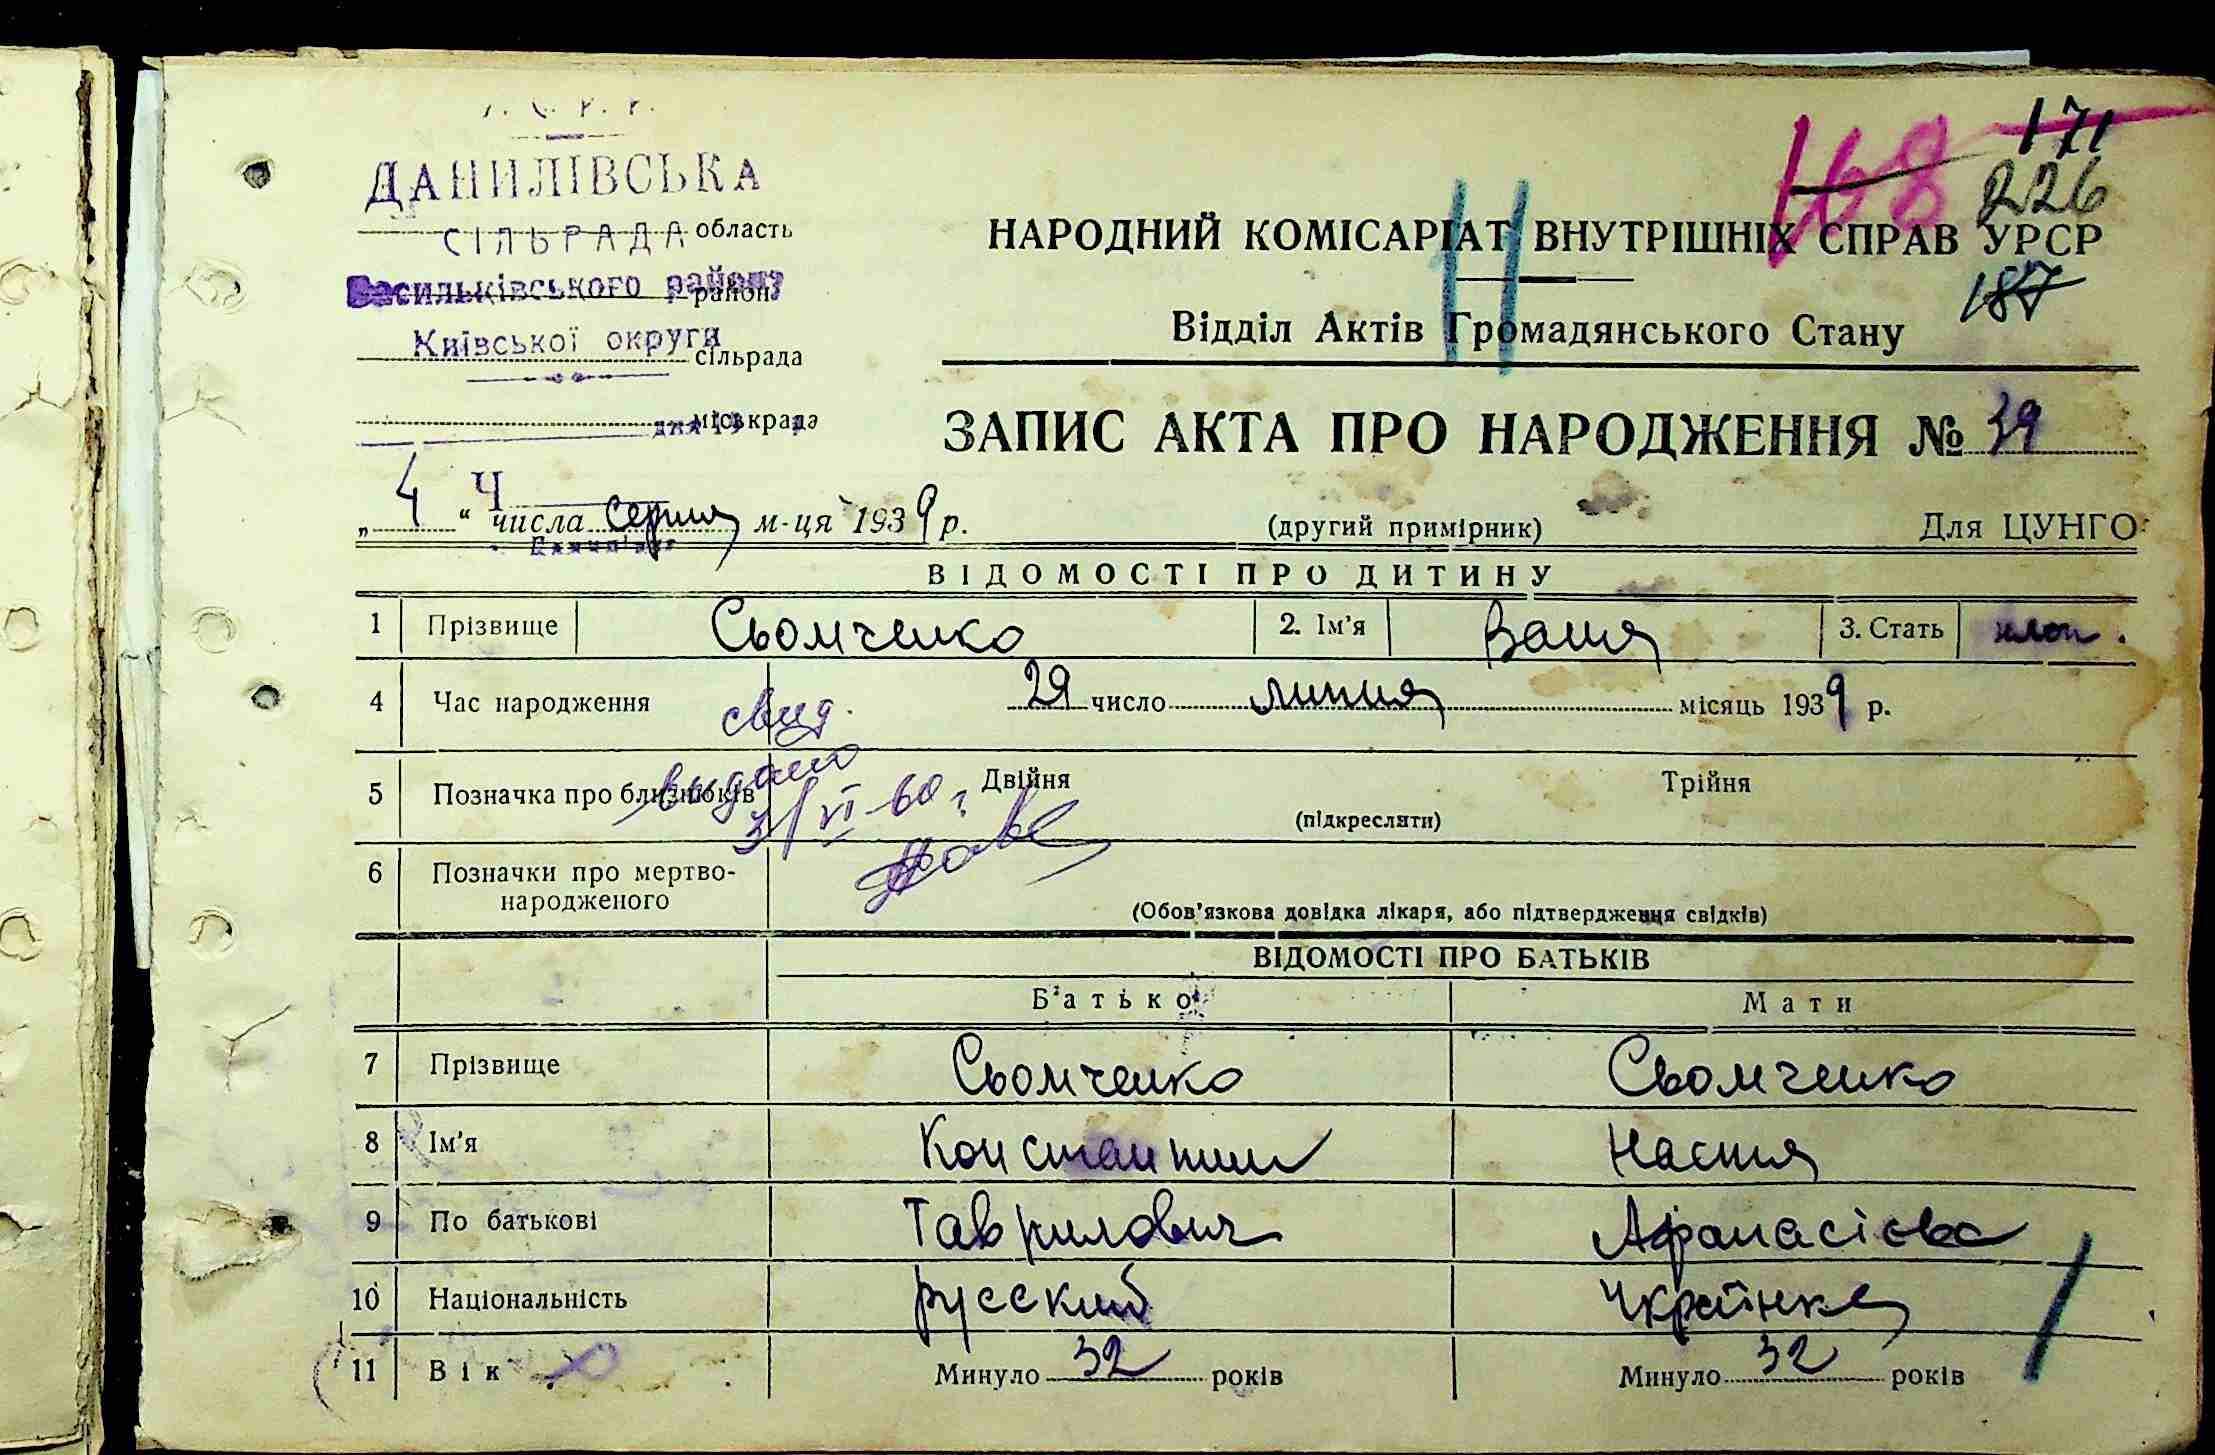 ДАНИЛІВСЬКА
СІЛЬРАДА область
Васильківського району район
Київської округи
сільрада
міськрада
168 171
226
187
НАРОДНИЙ КОМІСАРІАТ ВНУТРІШНІХ СПРАВ УРСР
Відділ Актів Громадянського Стану
ЗАПИС АКТА ПРО НАРОДЖЕННЯ № 39
„4“ числа серпня м-ця 1939 р. (другий примірник) Для ЦУНГО
ВІДОМОСТІ ПРО ДИТИНУ
1 Прізвище Сьомченко 2. Ім'я Ваня 3. Стать хлоп.
4 Час народження 29 число липня місяць 1939 р.
свид.
видано
5 Позначка про близнюків Двійня Трійня
(підкреслити)
VI 60 г.
6 Позначки про мертво-
народженого
(Обов'язкова довідка лікаря, або підтвердження свідків)
ВІДОМОСТІ ПРО БАТЬКІВ
Батько Мати
7 Прізвище Сьомченко Сьомченко
8 Ім'я Константин Настя
9 По батькові Гаврилович Афанасієва
10 Національність русский Українка
11 Вік Минуло 32 років Минуло 32 років